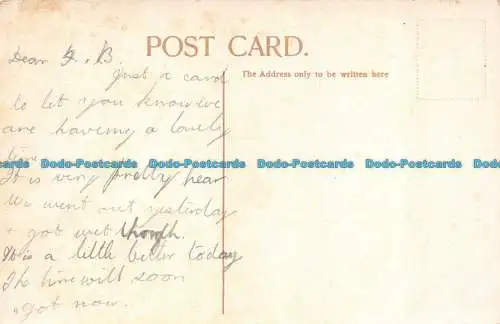 POST CARD.
The Address only to be written here
Dear G. B.
Just a card
to let you know we
are having a lovely
time
Dodo-Postcards Dodo-Postcards Dodo-Postcards Dodo-Postcards Dodo-Postcards
It is very pretty hear
We went out yesterday
& got wet through.
It is a little better today
The time will soon
got now.